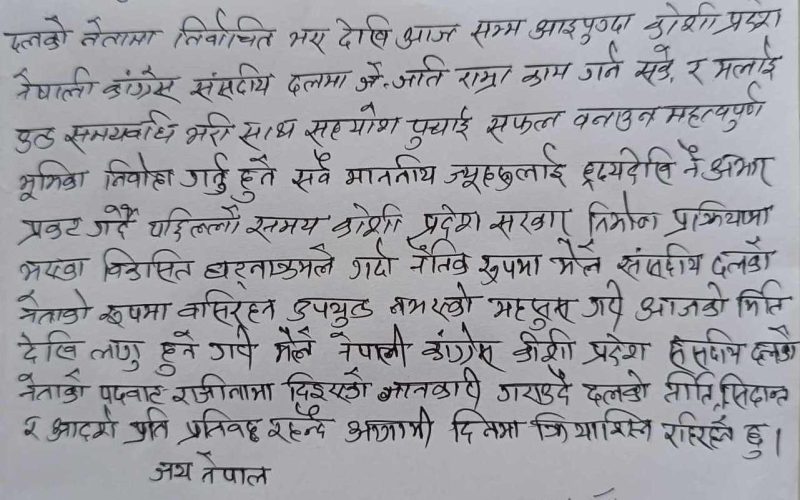 दलको नेतामा निर्वाचित भए देखि आज सम्म आइपुग्दा कोशी प्रदेश
नेपाली कांग्रेस संसदीय दलमा जे-जति राम्रा काम गर्न सकें, र मलाई
एउ समयावधि भरी साथ सहयोग पुर्‍याई सफल वनाउन महत्वपुर्ण
भूमिका निर्वाह गर्नु हुने सवै माननीय ज्यूहरुलाई हृदयदेखि नै आभार
प्रकट गर्दै पछिल्लो समय कोशी प्रदेश सरकार निर्माण प्रक्रियामा
भएका विकसित घटनाक्रमले गर्दा नैतिक रूपमा मैले संसदीय दलको
नेताको रूपमा वसिरहन उपयुक्त नभएको महसुस गरी आजको मिति
देखि लागु हुने गरी मैले नेपाली कांग्रेस कोशी प्रदेश संसदीय दलको
नेताको पदवाट राजीनामा दिइएको जानकारी गराउदै दलको नीति, सिद्दान्त
र आदर्श प्रति प्रतिवद्द रहन्दै आगामी दिनमा क्रियाशिल रहिरहने छु।
जय नेपाल